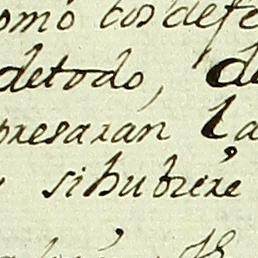 omo los defe
de todo, d
presaran la
si hubiere